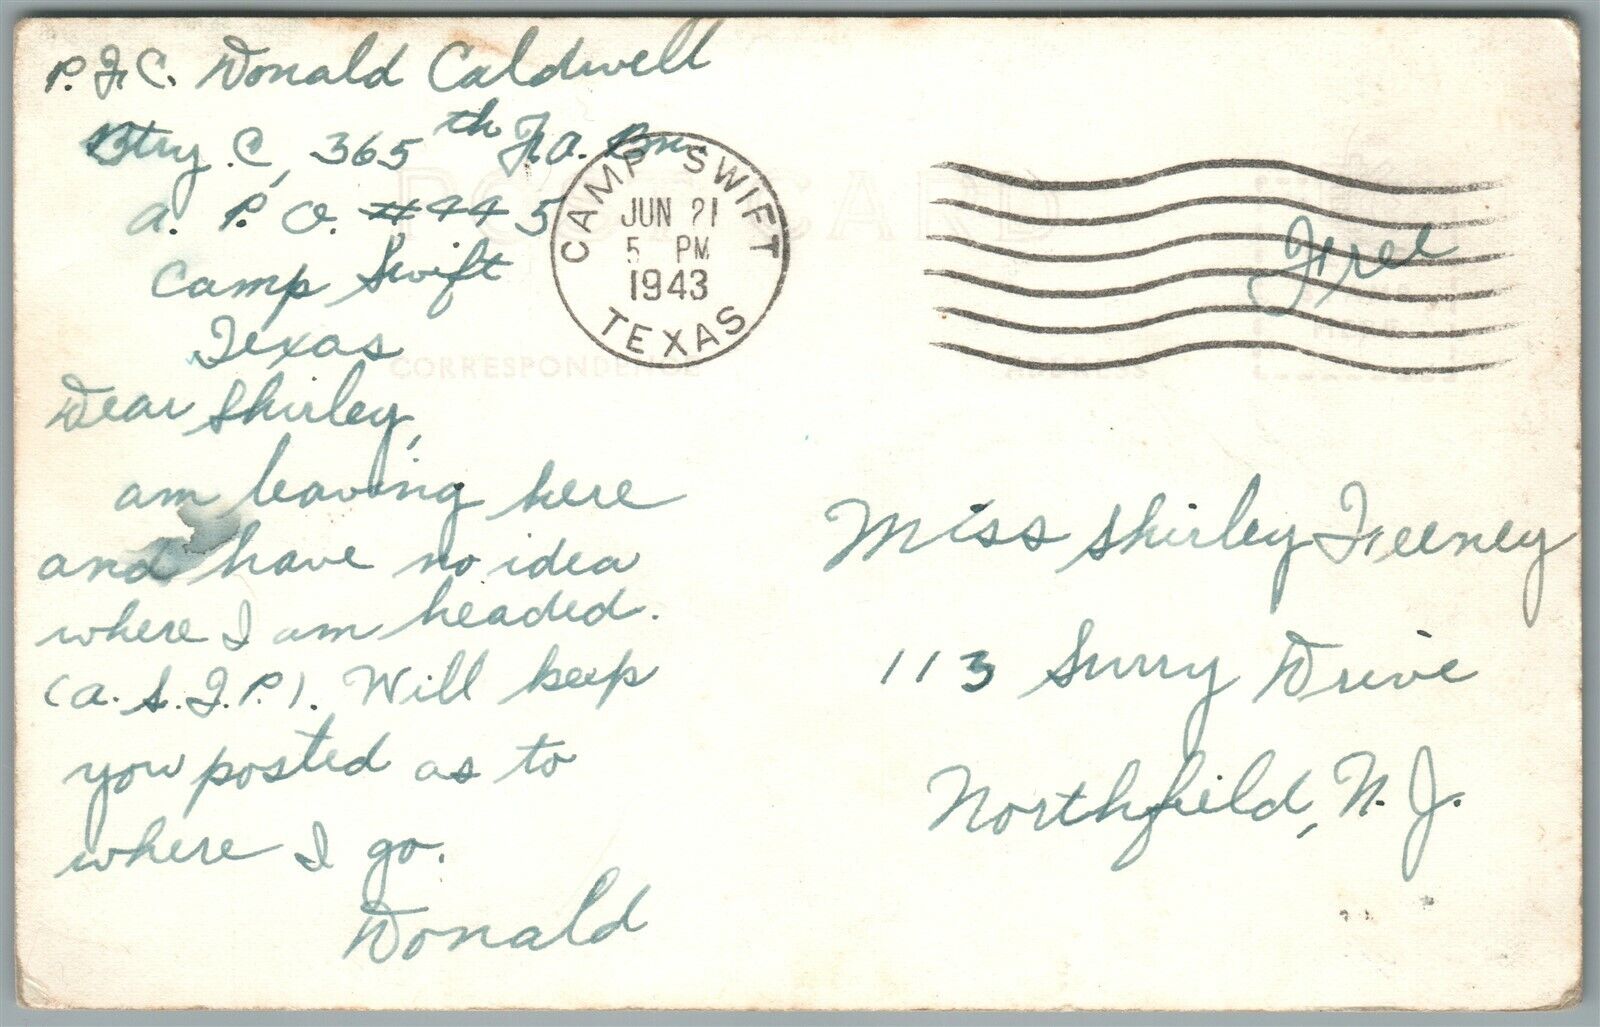 P.F.C. Donald Caldwell
Btry C, 365th F.A. Bn.
A. P. O. #445
Camp Swift
Texas
CAMP SWIFT
JUN 21
5 PM
1943
TEXAS
Free
POST CARD
CORRESPONDENCE
ADDRESS
Dear Shirley,
am leaving here
and have no idea
where I am headed.
(A.S.T.P.). Will keep
you posted as to
where I go.
Donald
Miss Shirley Feeney
113 Surry Drive
Northfield, N. J.